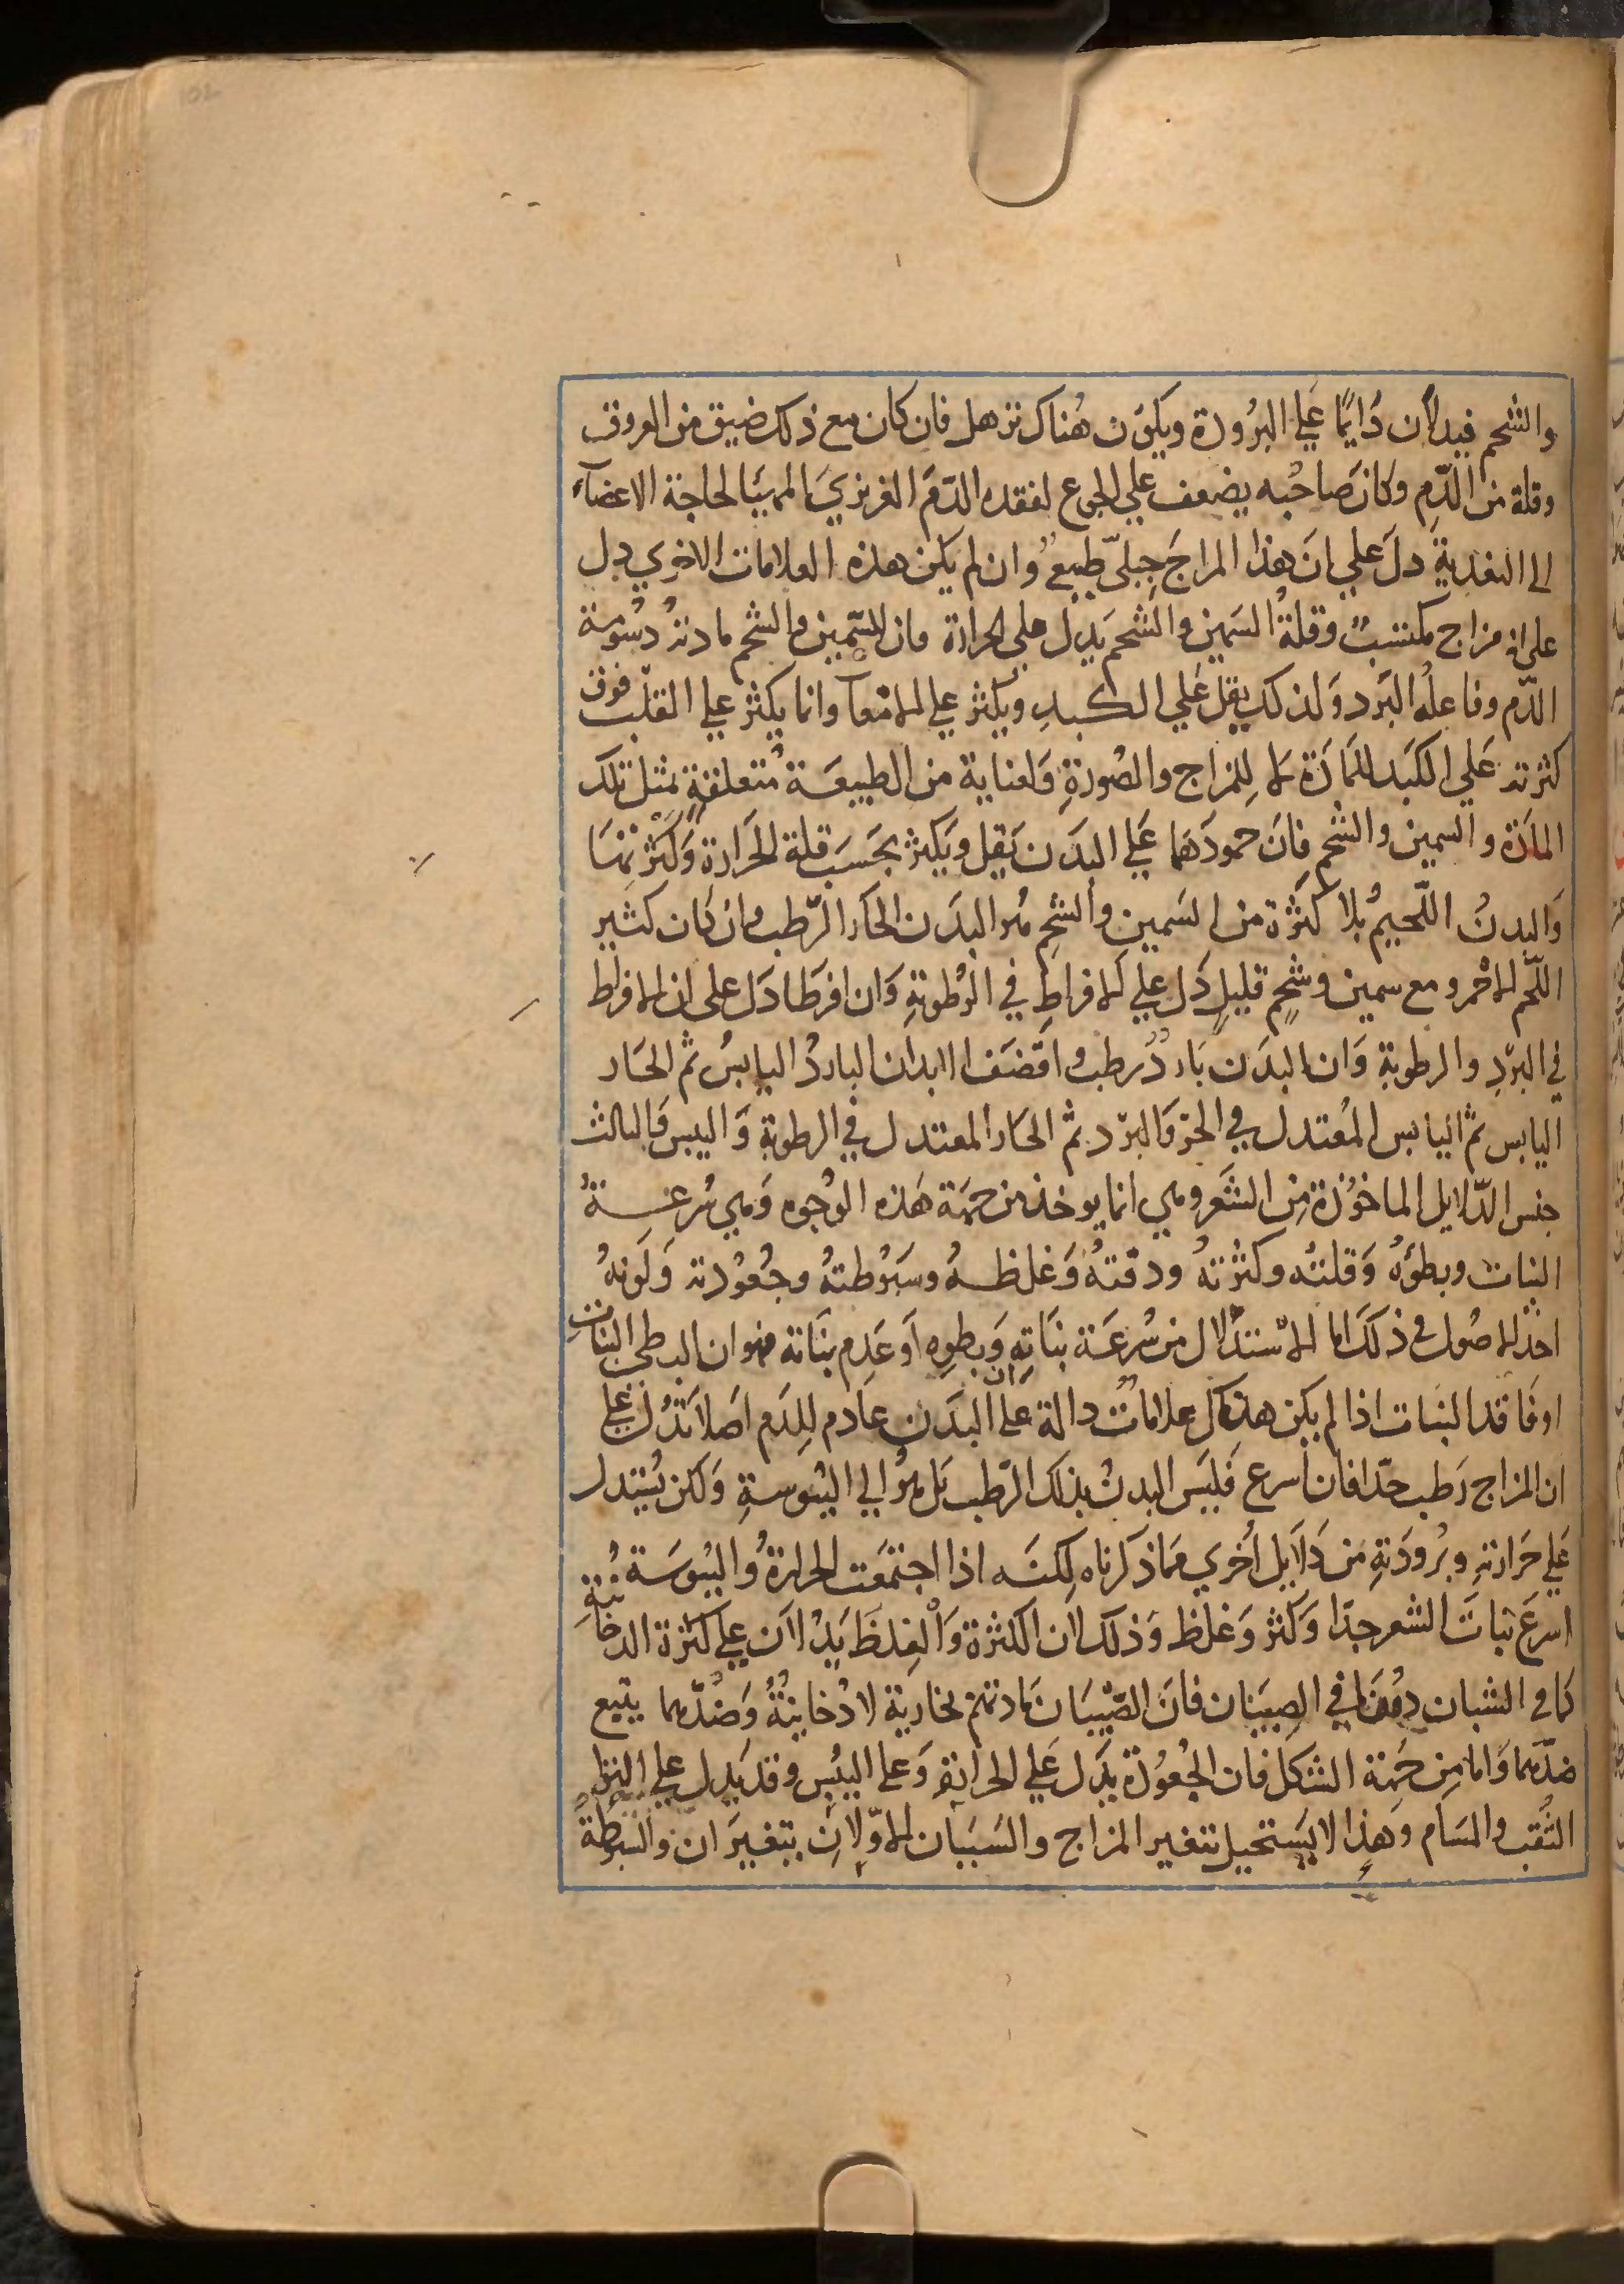 102
والشحم فيدلان دَايمًا عَلي البرُودة ويكون هُناك ترهل فان كان مع ذلك ضيق من العروق
وقلة من الدّم وكانَ صاحبُه يضعف علي الجوع لفقده الدّمَ الغريزيَ المهيّا لحاجة الاعضآء
الي التغذيةِ دلَ عَلي ان هذا المزاجَ جِبلىّ طبيعٌ وان لم يكن هذه العلامات الاخري دل
على انه مزاج مكتسبٌ وقلةُ السَمين والشحم يَدل على الحرارة فان السّمين والشحم مادتهُ دسُومة
الدّم وفاعلُه البَرد وَلذلك يقل عَلي الكبدِ ويكثر علي الامعآ وانما يكثر علي القلب فوق
كثرته عَلي الكبَد للمَادّة لا لِلمزاج والصُورةِ وَلعناية من الطبيعَة مُتعلقةٍ بمثل تلك
المادَة والسمين والشحم فانَ جمودَهمَا عَلي البدَن يَقل ويَكثر بحَسَب قلة الحَرارة وَكثرتهَا
وَالبدنُ اللّحيمُ بلا كثرة من السَمين والشحم هُو البدَن الحَار الرّطب وان كان كثير
اللّحم الاحمر ومع سمين وشحمٍ قليلٍ دَل علي الافراطِ في الرُطوبةِ وَان افرَطا دَل على ان الافراط
في البرْدِ والرطوبة وَان البدَن بَاردٌ رطب واقضَف الابدان الباردُ اليابسُ ثم الحَار
اليابس ثم اليابس المُعتدل في الحرّ والبرد ثم الحَار المعتدل في الرطوبة وَاليبس وَالثالث
جنس الدّلايل الماخوُذة مِن الشَعر وهي انما يوخذ من جهَة هَذه الوُجوه وَهي سُرعَــة
النبات وبطؤُه وَقلتُه وكثرتهُ ودقتهُ وَغلظــهُ وسبُوطتهُ وجعُوُدته وَلَونهُ
احَد الاصُول في ذلكَ اما الاستدلال من سُرعَة نبَاتهِ وَبطوِه اَو عَدِم نبَاته فهو ان البطي النبَات
اوفَاقد النبات اذا لم يكن هناك علاماتٌ دالة علي ان البدَن عادم للدَم اصَلا تدُل علي
ان المزاج رَطب جدّا فان اسرع فَليَس البدنُ بذلك الرّطب بَل هُو الي اليُبوسةِ وَلكن يُستدل
عَلي حَرارتهِ وبُرودَتهِ مَن دَلاَيل اُخري ممَا ذكرناه لِكنَه اذا اجتمعَت الحرارةُ واليُبوسَة
اسرعَ نباتَ الشعر جدّا وَكثر وَغلظ وَذلك لان الكثرة وَالغلظَ يَدُلان علي كثرة الدخانية
كما في الشبان دون مَا في الصِبيَان فانَ الصّبْيَان مَادتهم بخارية لا دُخانيةٌ وَضدّهما يتبع
ضدّهما وَاما مِن جَهة الشكل فان الجُعُوُدة يَدل عَلي الحرارة وَعلي اليُبس وقد يدل علي التوا
الثُقب والمَسام وَهذا لا يَستحيل بتغير المزاج والسَببَان الاوّلانِ يتغيرَان والسُبُوطةُ